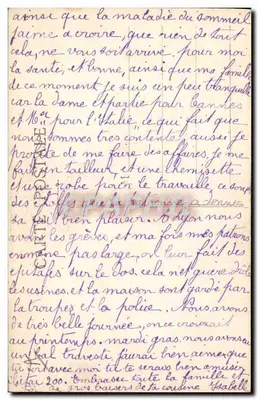 ainsi que la maladie du sommeil
j'aime à croire, que rien de tout
cela, ne vous soit arrivé, pour moi
la santé, est bonne, ainsi que ma famille
de ce moment je suis un peu tranquille
car la dame est partie pour Cannes
et Mr pour l'Italie ce qui fait que
nous sommes très contentes aussi je
profite de me faire des affaires, je me
fait un tailleur, et une chemisette
une robe pour le travaille, ce sont
des
bien plaisir. A Lyon nous
avons les grèves, et ma fois mes patrons
comme pas large, on leur fait des
sur le dos, cela net guère
les usines, et la maison sont gardé par
la troupes et la police. Nous avons
de très belle journée, on ce croirait
au printemps. mardi gras, nous avons eu
un bal travesti j'aurai bien aimer que
avec moi tu te serais bien amuser
200. Embrasse toute la famille et
baisers de ta cousine Isabelle
CARTE POSTALE